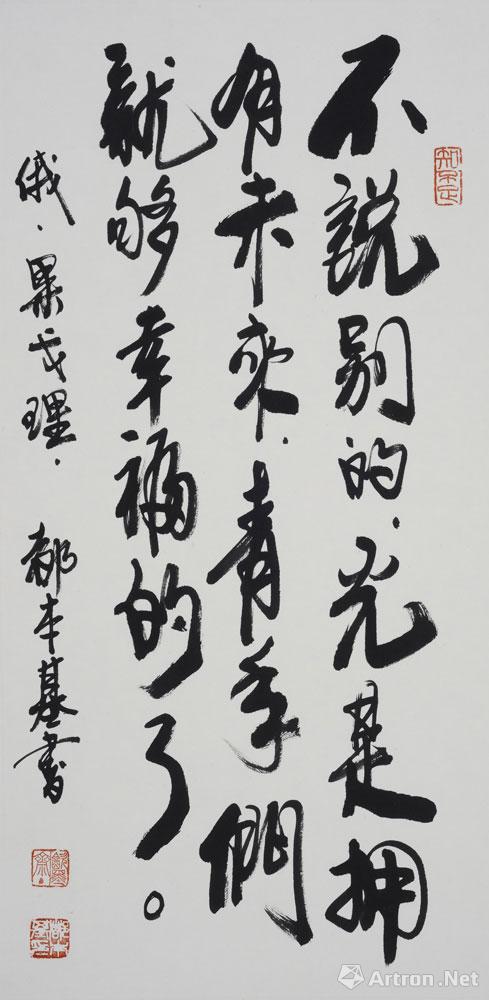 不說别的、光是拥
有未來、青年們
就够幸福的了。
俄·果戈理·
都本基書
知不足
Artron.Net